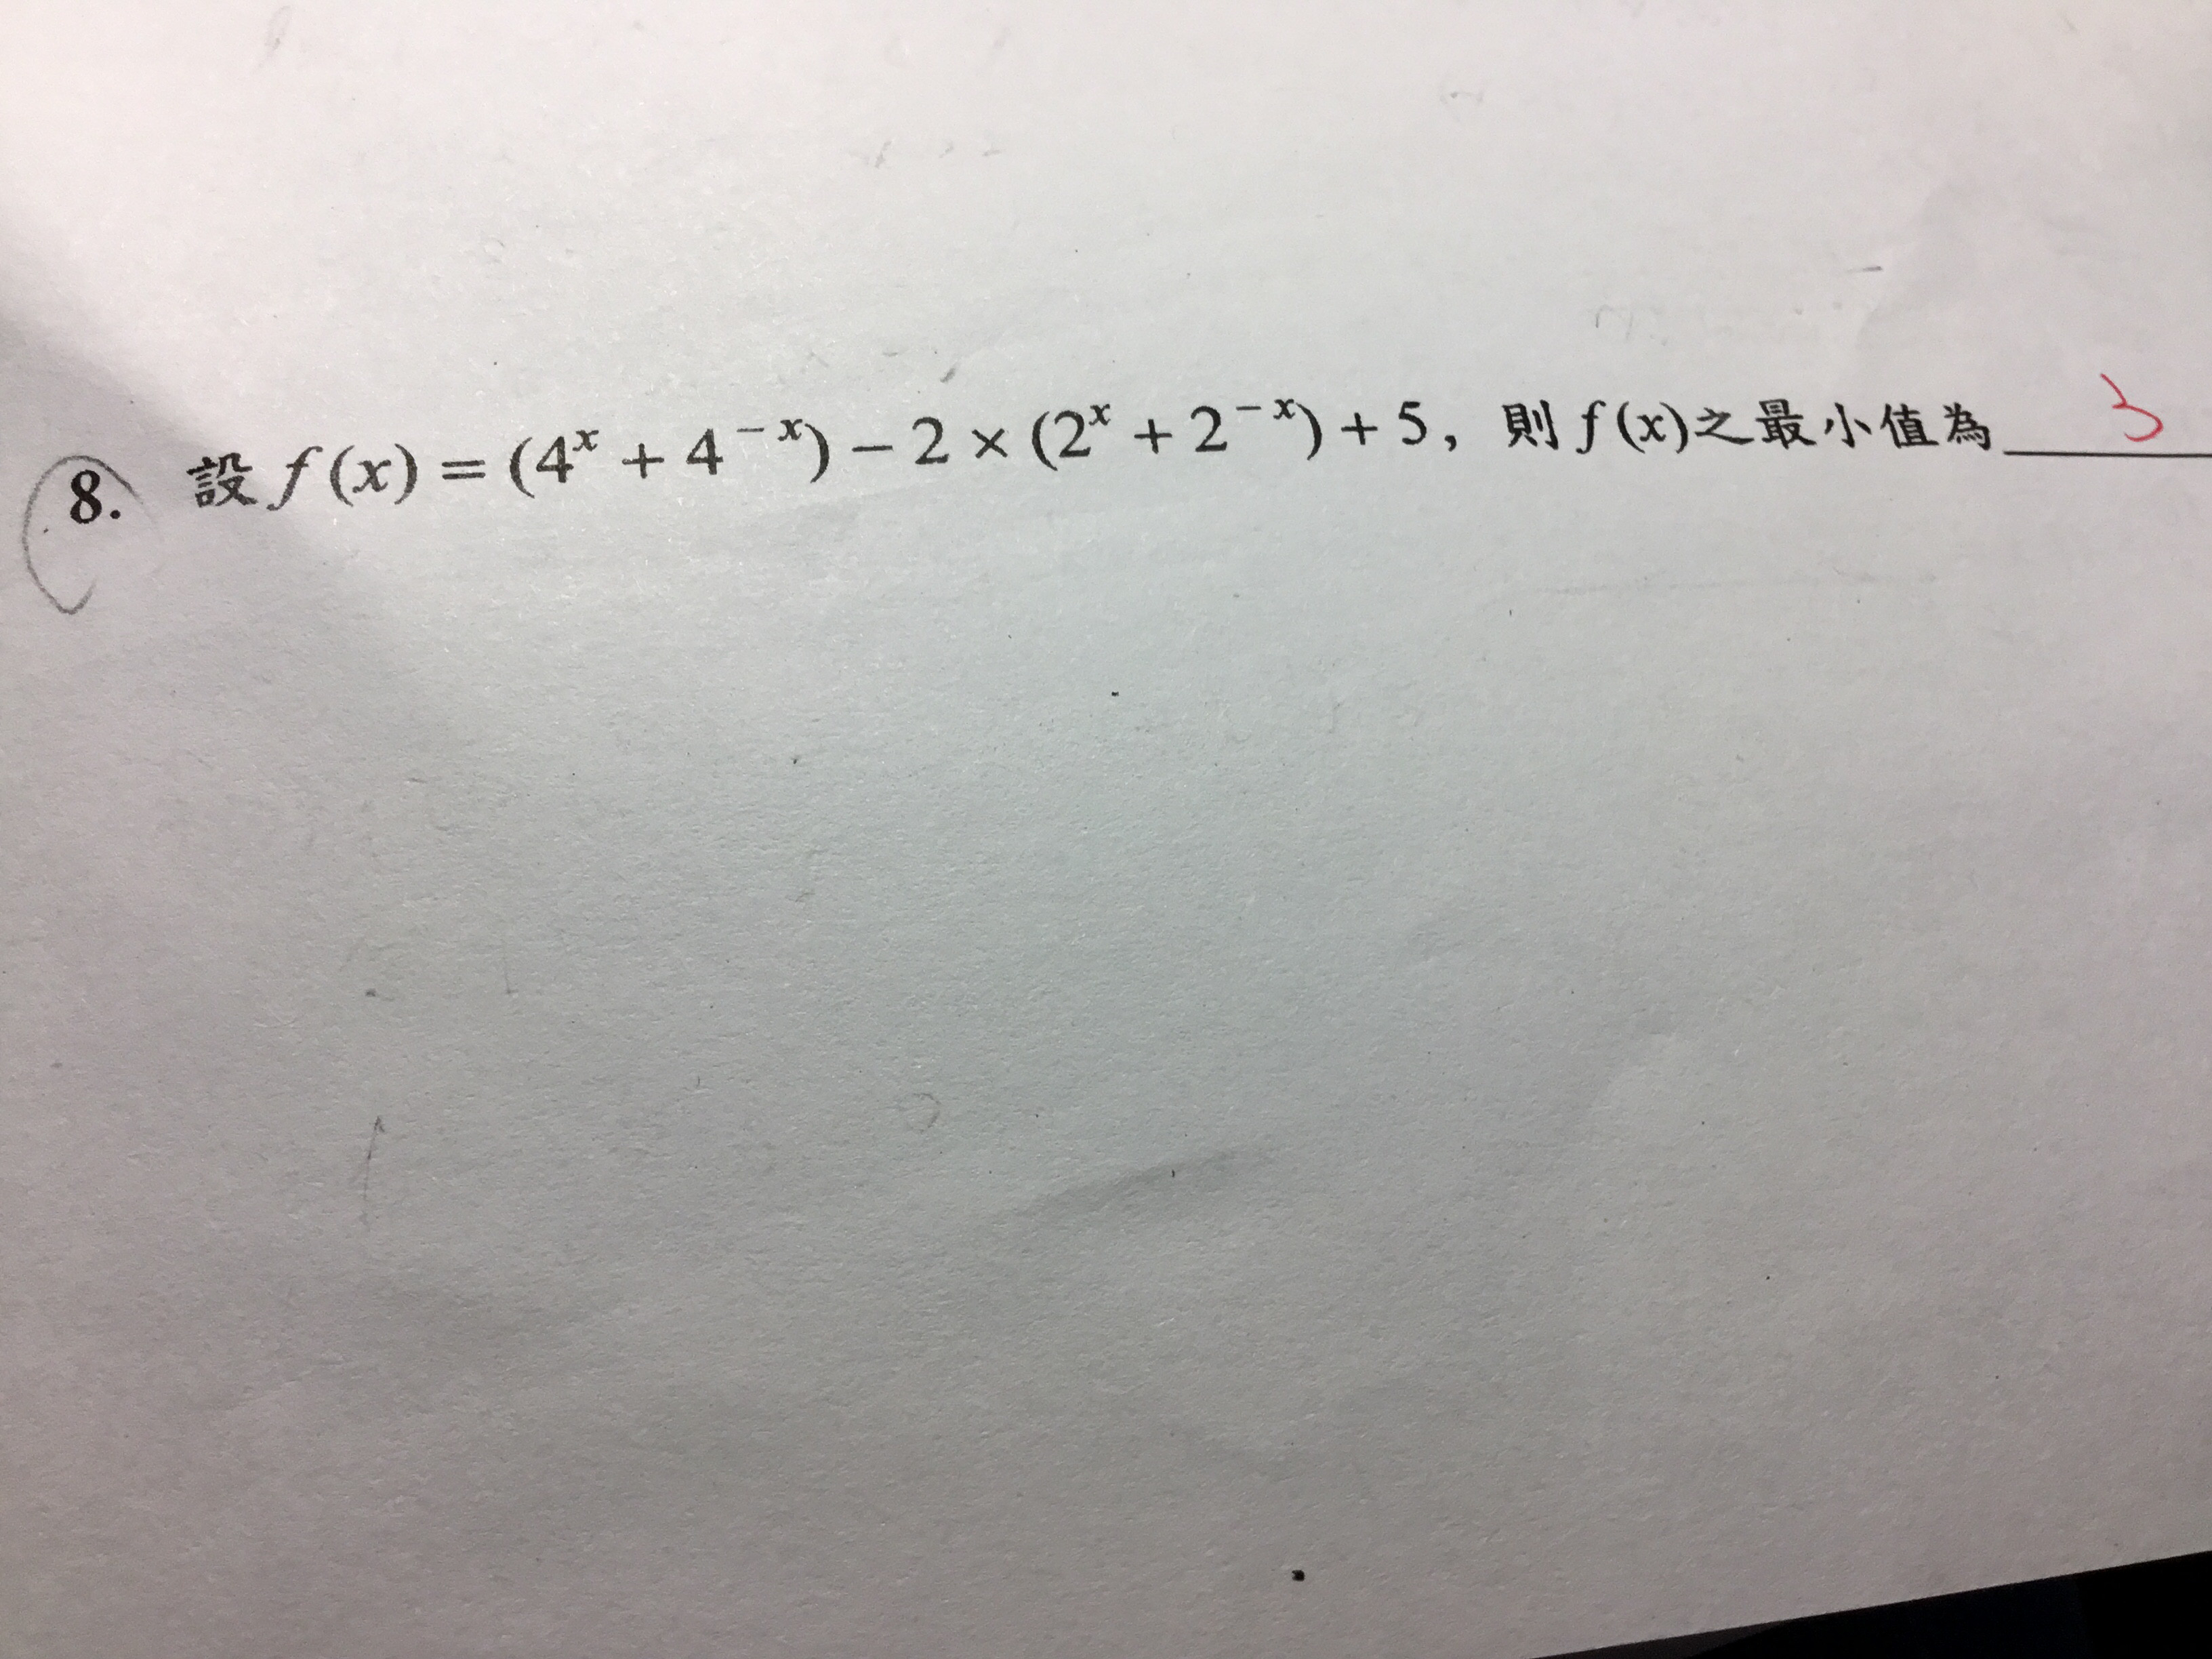 8. 設 f(x) = (4ˣ + 4⁻ˣ) − 2 × (2ˣ + 2⁻ˣ) + 5, 則 f(x)之最小值為 3